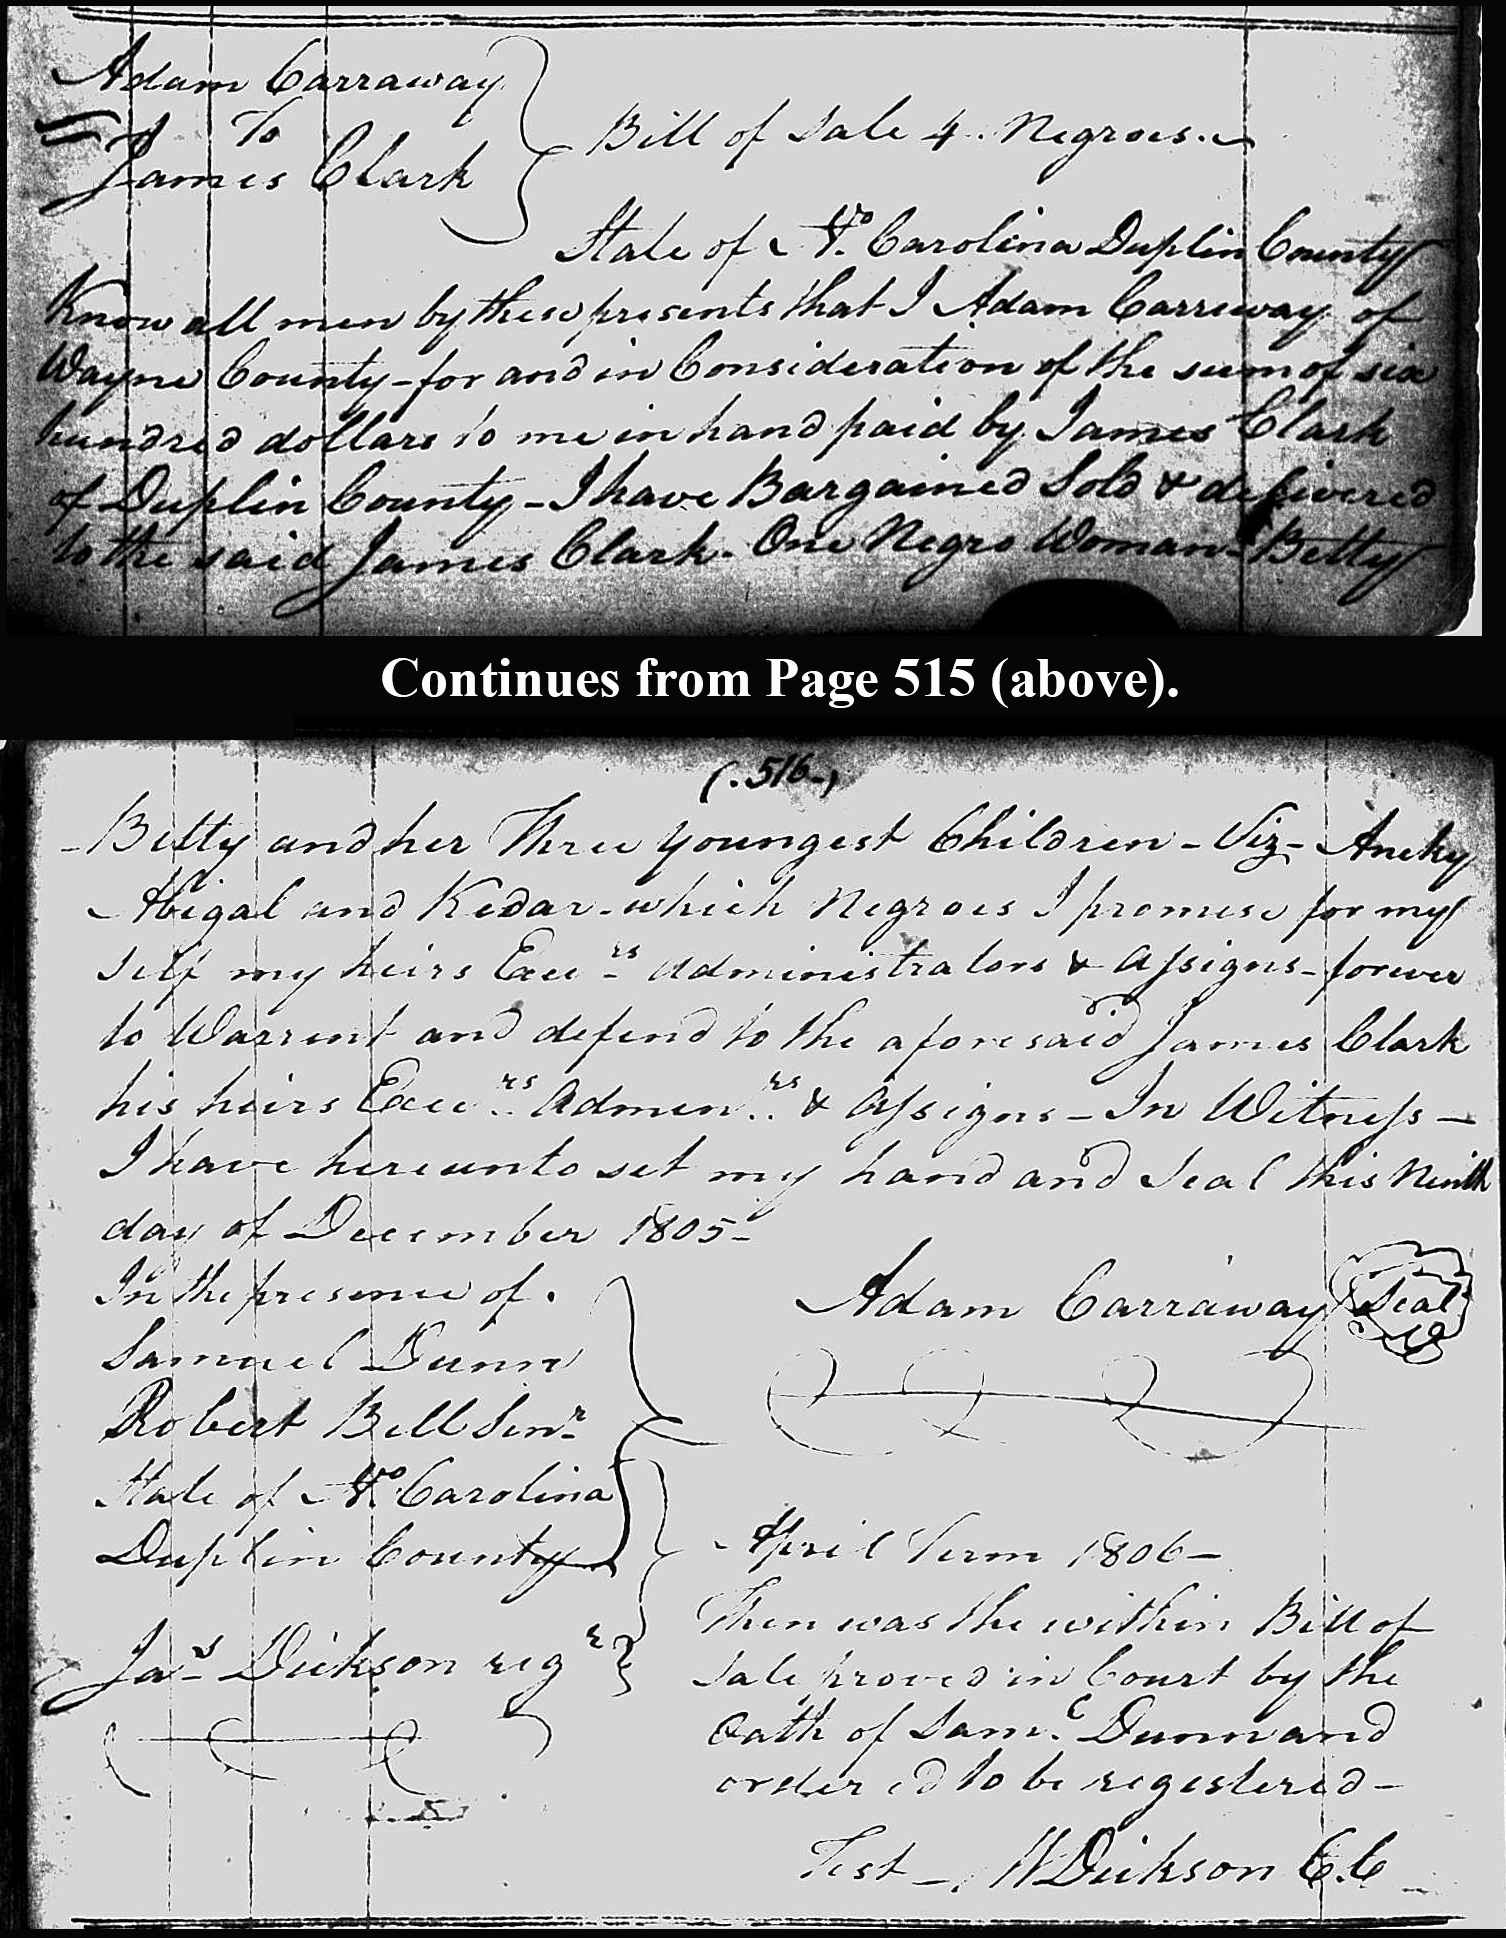 Adam Carraway
To
James Clark
Bill of Sale 4. Negroes.
State of No. Carolina Duplin County
Know all men by these presents that I Adam Carreway of
Wayne County - for and in Consideration of the sum of six
hundred dollars to me in hand paid by James Clark
of Duplin County - I have Bargained Sold & delivered
to the said James Clark - One Negro Woman - Betty
Continues from Page 515 (above).
(.516-)
- Betty and her Three youngest Children - Viz - Aneky
Abigal and Kedar - which Negroes I promise for my
self my heirs Exers Administrators & Assigns - forever
to Warrent and defend to the aforesaid James Clark
his heirs Exers Admenrs & Assigns - In Witness -
I have hereunto set my hand and Seal this Ninth
day of December 1805 -
In the presence of.
Samuel Dunn
Robert Bell Senr
Adam Carraway Seal
State of No. Carolina
Duplin County
April Term 1806 -
Then was the within Bill of
Sale proved in Court by the
Oath of Saml. Dunn and
ordered to be registered -
Jas Dickson regr
Test - W Dickson C.C